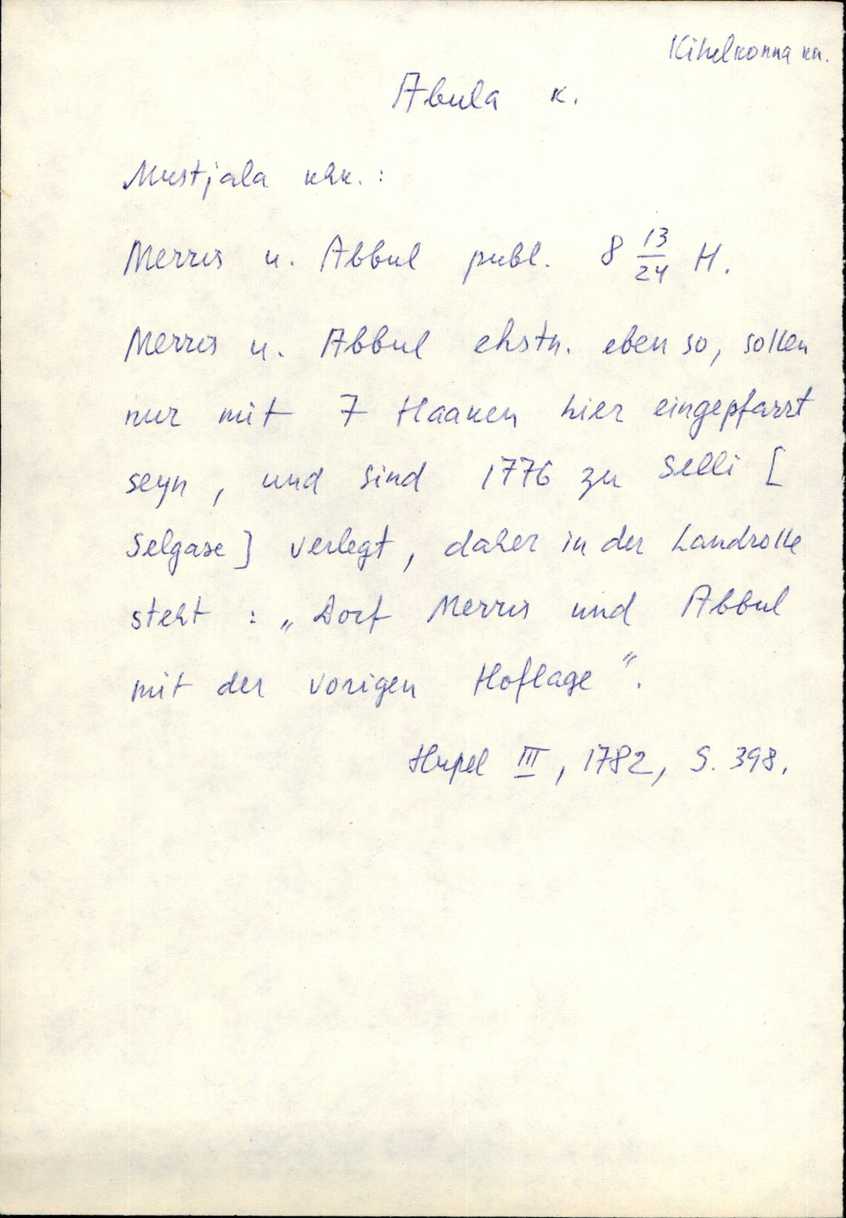 Kihelkonna kn.
Abula k.
Mustjala khk. :
Merris u. Abbul publ. 8 13/24 H.
Merris u. Abbul ehstn. eben so, sollen
nur mit 7 Haaken hier eingepfarrt
seyn, und sind 1776 zu Selli [
Selgase] verlegt, daher in der Landrolle
steht : „Dorf Merris und Abbul
mit der vorigen Hoflage“.
Hupel III, 1782, S. 398.